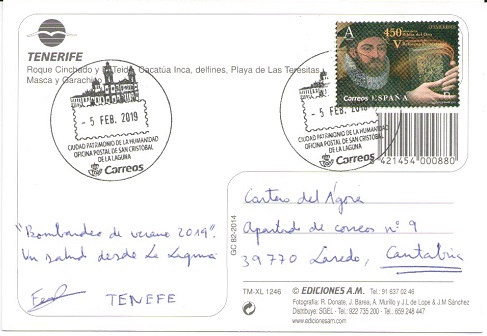 TENERIFE
Roque Cinchado y Teide, Cacatúa Inca, delfines, Playa de Las Teresitas,
Masca y Garachico
- 5 FEB. 2019
CIUDAD PATRIMONIO DE LA HUMANIDAD
OFICINA POSTAL DE SAN CRISTÓBAL
DE LA LAGUNA
Correos
A
450
V
Correos ESPAÑA
- 5 FEB. 2019
CIUDAD PATRIMONIO DE LA HUMANIDAD
OFICINA POSTAL DE SAN CRISTÓBAL
DE LA LAGUNA
Correos
8 421454 000880
"Bombardeo de verano 2019".
Un salud desde La Laguna
TENEFE
GC 82-2014
Cartero del Ágora
Apartado de correos nº 9
39770 Laredo, Cantabria
TM-XL 1246
© EDICIONES A.M. Tel.: 91 637 02 46
Fotografía: R. Donate, J. Barea, A. Murillo y J.L de Lope & J.M Sánchez
Distribuye: SGEL - Tel.: 922 735 200 - Tel.: 659 248 447
www.edicionesam.com